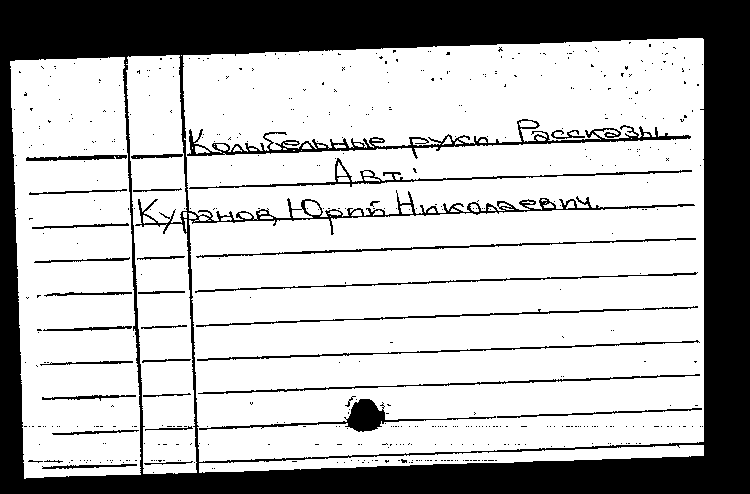 Колыбельные руки. Рассказы.
Авт.:
Куранов, Юрий Николаевич.